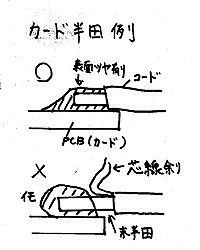 カード半田例
○
表面ツヤ有り
コード
PCB(カード)
×
芯線余り
イモ
未半田